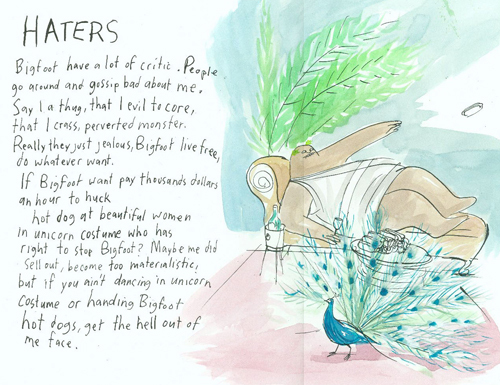 HATERS
Bigfoot have a lot of critic. People
go around and gossip bad about me.
Say I a thug, that I evil to core,
that I crass, perverted monster.
Really they just jealous, Bigfoot live free,
do whatever want.
If Bigfoot want pay thousands dollars
an hour to huck
hot dog at beautiful women
in unicorn costume who has
right to stop Bigfoot? Maybe me did
sell out, become too materialistic,
but if you ain't dancing in unicorn
costume or handing Bigfoot
hot dogs, get the hell out of
me face.